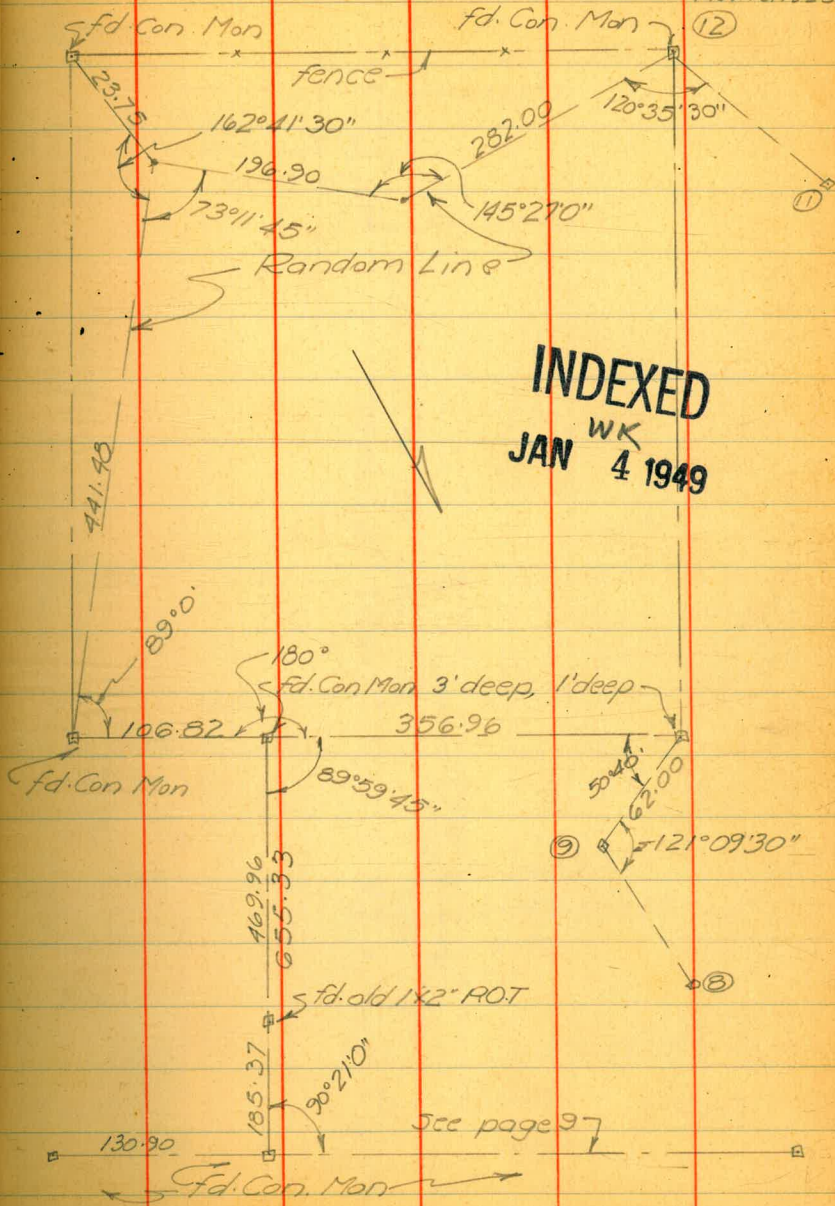 fd. Con. Mon
fd. Con. Mon
(12)
fence
23.75
162°41'30"
282.00
120°35'30"
196.90
(11)
73°11'45"
145°27'0"
Random Line
INDEXED
WK
JAN 4 1949
441.48
89°0'
180°
fd. Con Mon 3' deep, 1' deep
106.82
356.96
fd. Con Mon
89°59'45"
50°40'
62.00
(9)
121°09'30"
469.96
655.33
(8)
fd. old 1x2" P.O.T
185.37
90°21'0"
See page 9
130.90
fd. Con. Mon